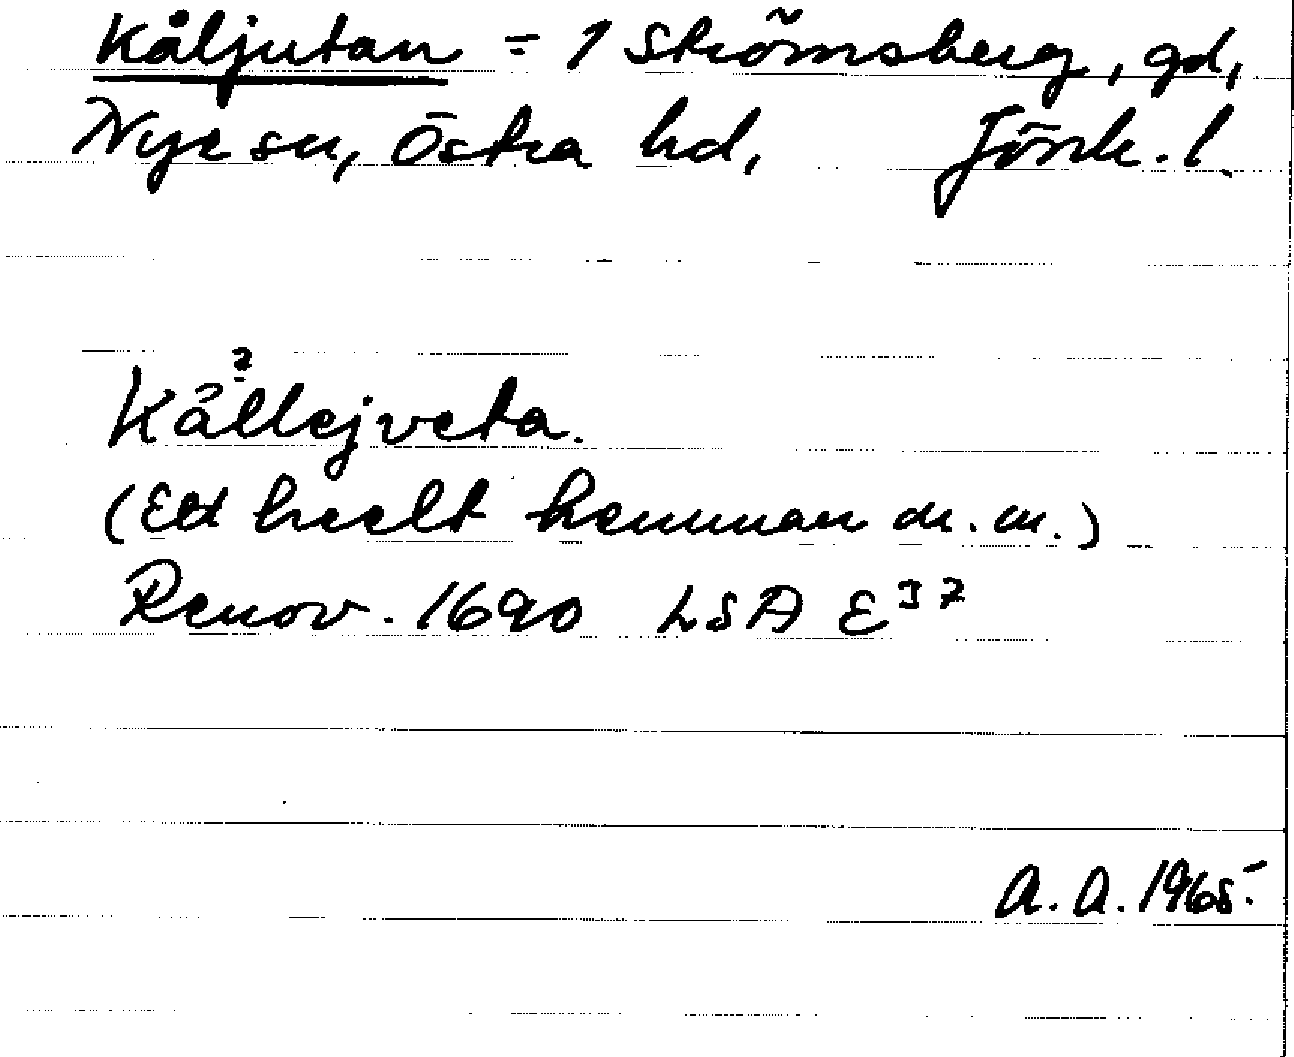 Kåljutan = 1 Strömsberg, gd,
Nye sn, Östra hd, Jönk. l.
?
Kållejveta.
(Ett heelt hemman m. m.)
Renov. 1690 LSA E 37
A. A. 1965.